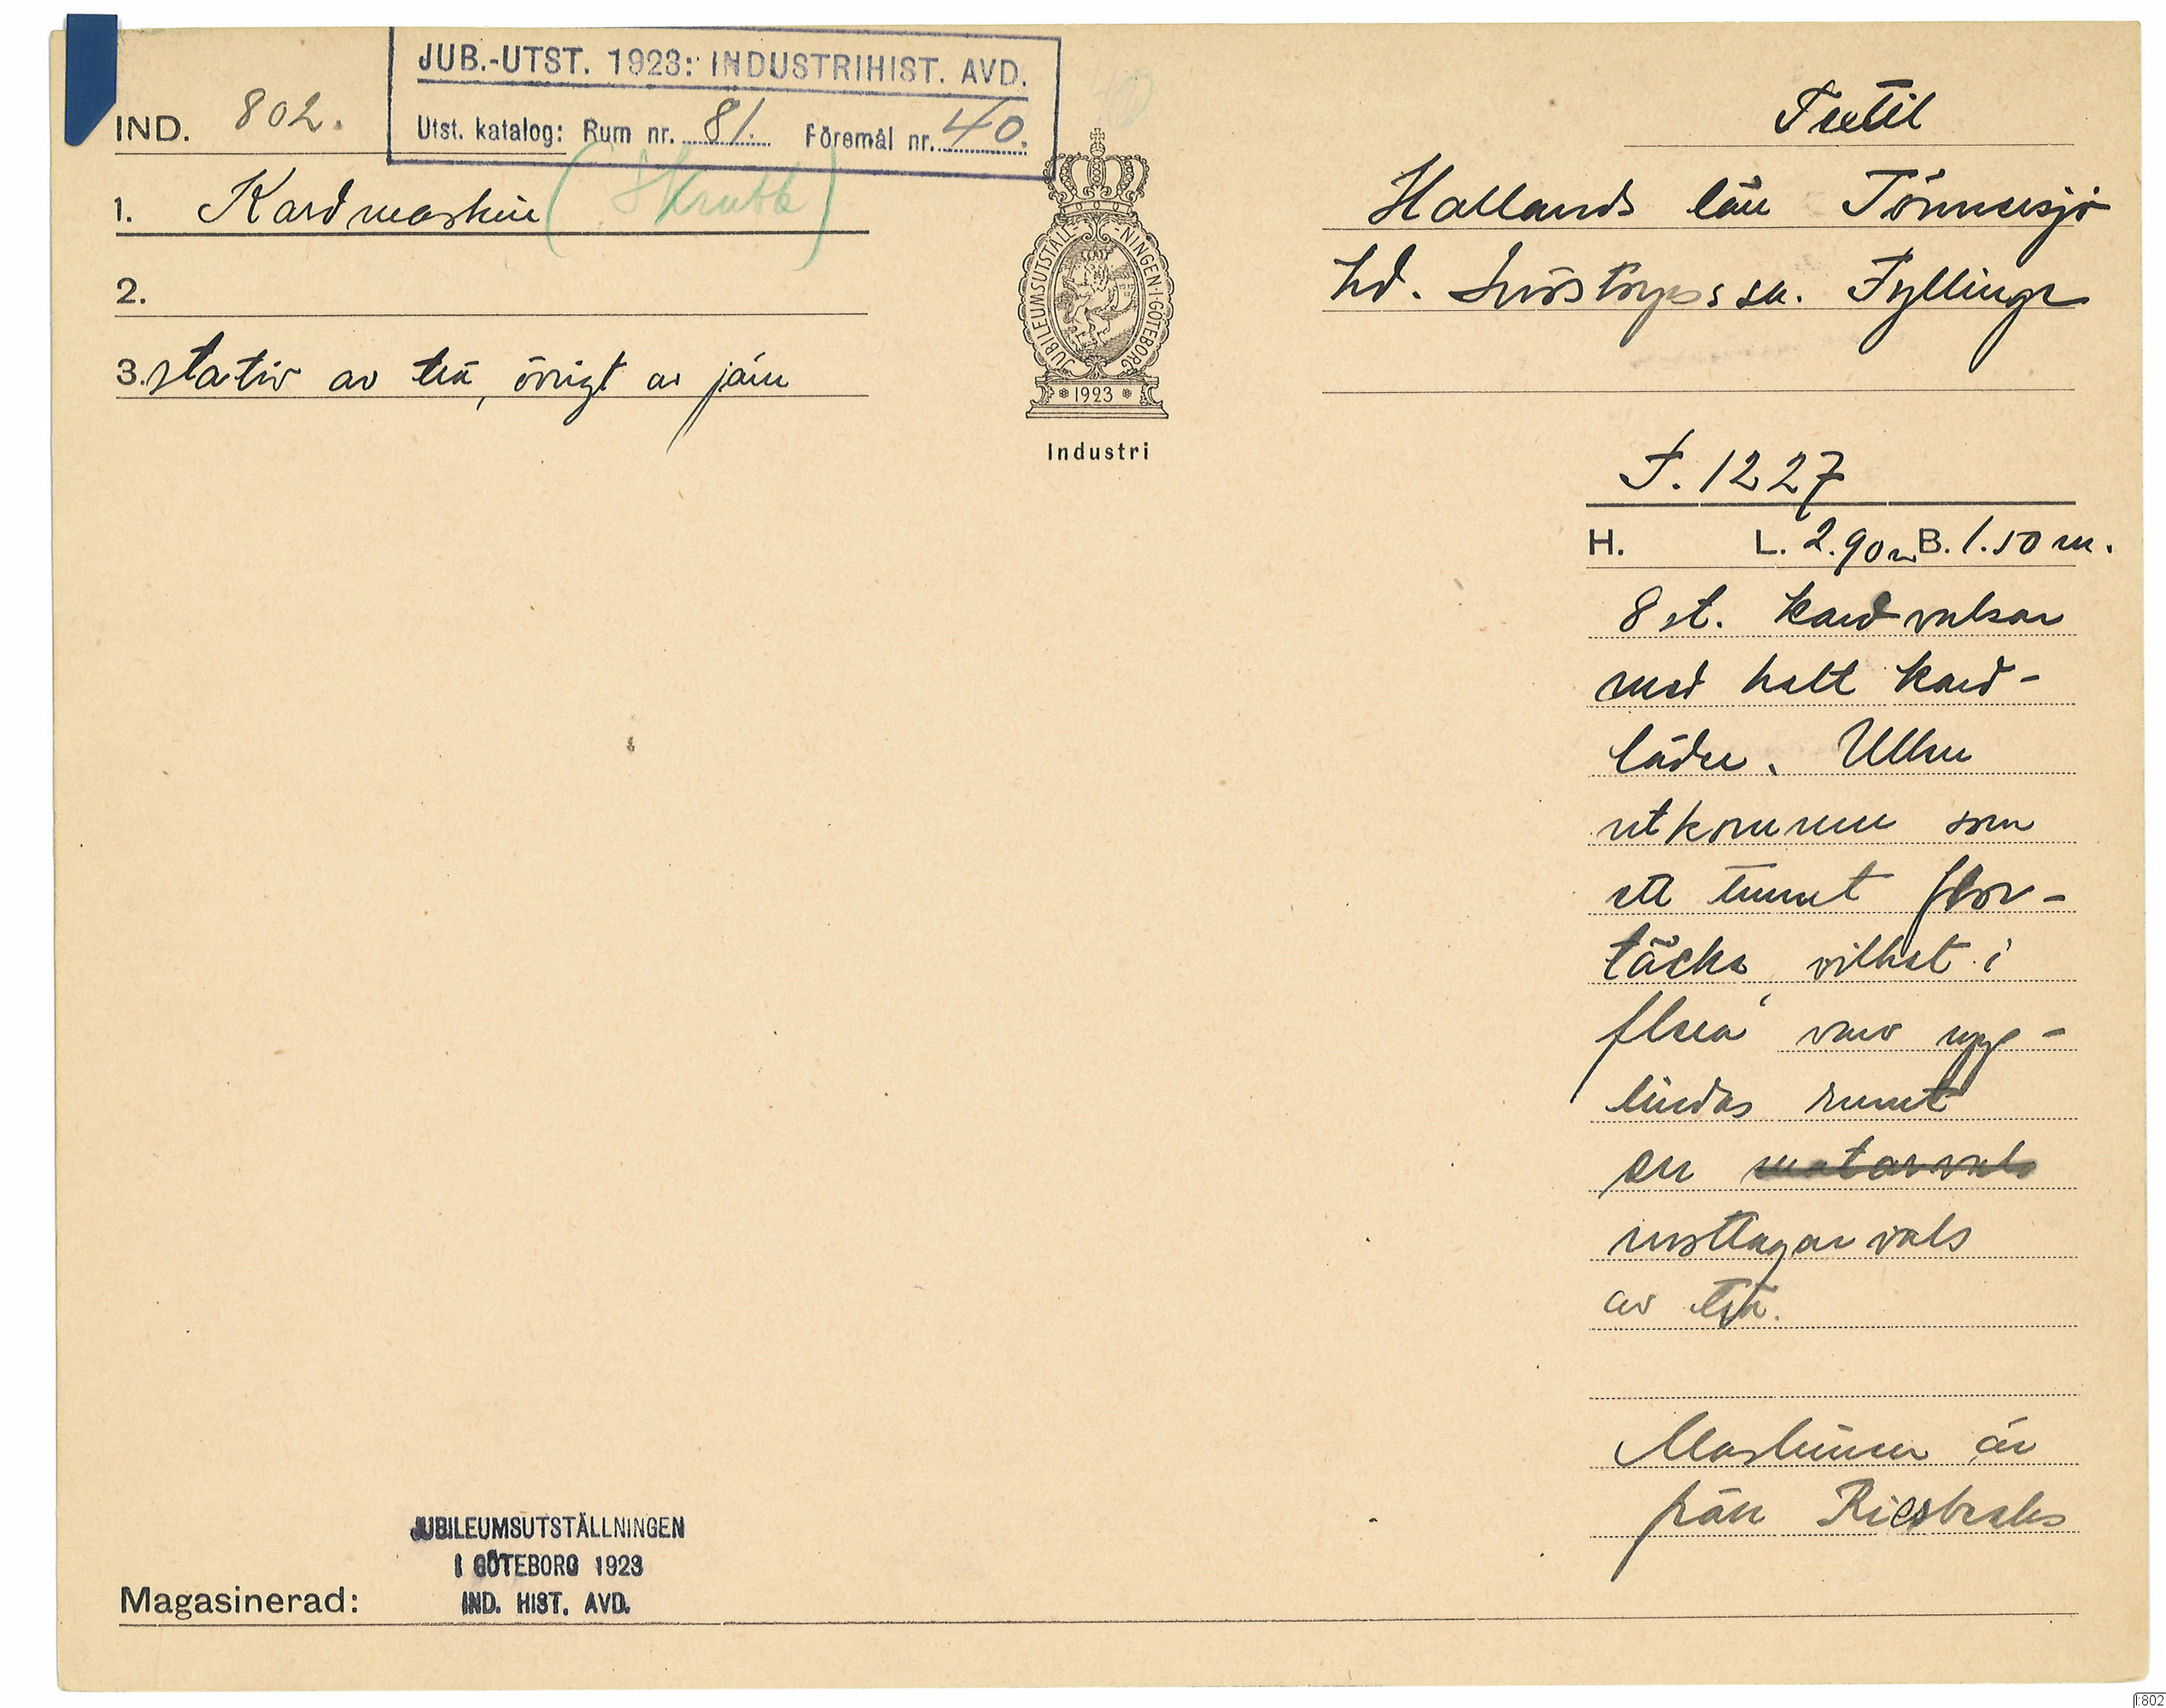 JUB.-UTST. 1923: INDUSTRIHIST. AVD.
Utst. katalog: Rum nr. 81. Föremål nr. 40.
IND. 802.
1. Kardmaskin (Skrubb)
2.
3. stativ av trä, övrigt av järn
JUBILEUMSUTSTÄLLNINGEN·I·GÖTEBORG
1923
Industri
Textil
Hallands län Tönnersjö
hd. Snöstorps sn. Fyllinge
F. 1227
H. L. 2.90 m B. 1.50 m.
8 st. kardvalsar
med helt kard-
läder. Ullen
utkommer som
ett tunnet flor-
täcke vilket i
flera varv upp-
lindas runt
en matarvals
mottagarvals
av trä.
Maskinen är
från
JUBILEUMSUTSTÄLLNINGEN
I GÖTEBORG 1923
IND. HIST. AVD.
Magasinerad:
802